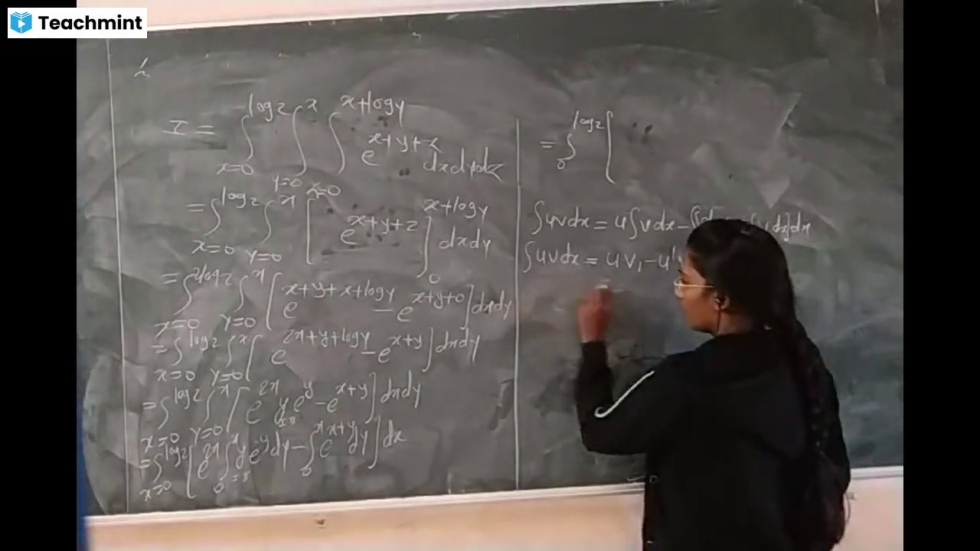 Teachmint
I = ∫_{x=0}^{log2} ∫_{y=0}^{x} ∫_{z=0}^{x+logy} e^{x+y+z} dxdydz
= ∫_{x=0}^{log2} ∫_{y=0}^{x} [e^{x+y+z}]_{0}^{x+logy} dxdy
= ∫_{x=0}^{log2} ∫_{y=0}^{x} [e^{x+y+x+logy} - e^{x+y+0}] dxdy
= ∫_{x=0}^{log2} ∫_{y=0}^{x} [e^{2x+y+logy} - e^{x+y}] dxdy
= ∫_{x=0}^{log2} ∫_{y=0}^{x} [e^{2x} y e^{y} - e^{x+y}] dxdy
= ∫_{x=0}^{log2} [e^{2x} ∫_{0}^{x} y e^{y} dy - ∫_{0}^{x} e^{x+y} dy] dx
= ∫_{0}^{log2} [
∫uvdx = u∫vdx - dx
∫uvdx = uv₁ - u'